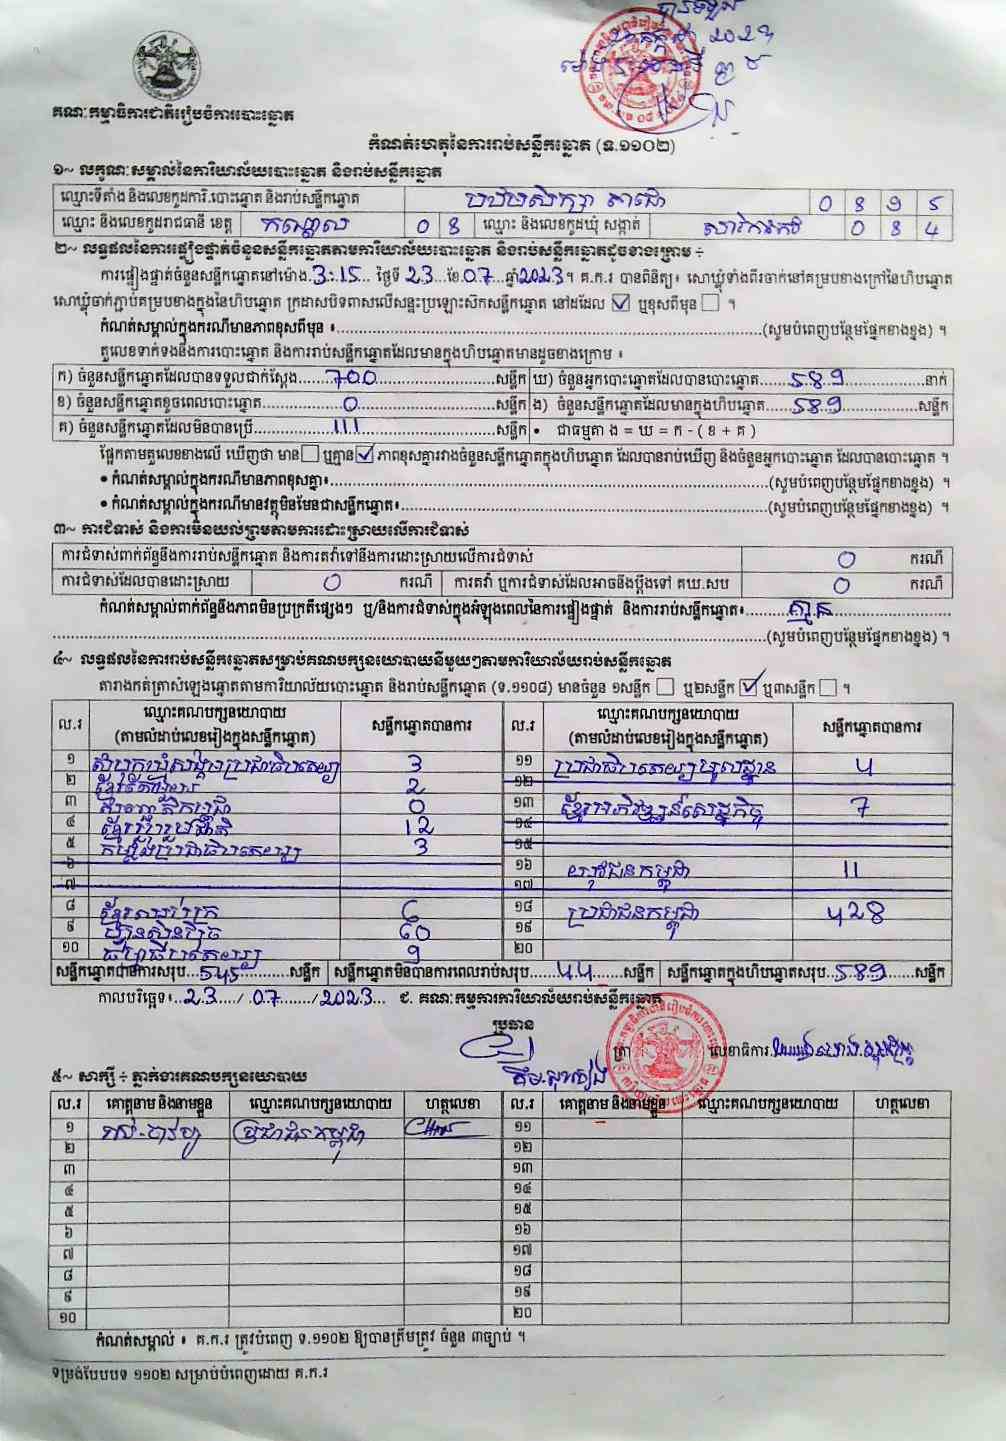 គណៈកម្មាធិការជាតិរៀបចំការបោះឆ្នោត
កំណត់ហេតុនៃការរាប់សន្លឹកឆ្នោត (ទ.១១០២)
១~ លក្ខណៈសម្គាល់នៃការិយាល័យបោះឆ្នោត និងរាប់សន្លឹកឆ្នោត
ឈ្មោះទីតាំង និងលេខកូដការិ.បោះឆ្នោត និងរាប់សន្លឹកឆ្នោត
ឈ្មោះ និងលេខកូដរាជធានី ខេត្ត កណ្តាល 0 8 ឈ្មោះ និងលេខកូដឃុំ សង្កាត់ 0 8 4
២~ លទ្ធផលនៃការផ្ទៀងផ្ទាត់ចំនួនសន្លឹកឆ្នោតតាមការិយាល័យបោះឆ្នោត និងរាប់សន្លឹកឆ្នោតដូចខាងក្រោម ÷
ការផ្ទៀងផ្ទាត់ចំនួនសន្លឹកឆ្នោតនៅម៉ោង 3:15 ថ្ងៃទី 23 ខែ 07 ឆ្នាំ 2023។ គ.ក.រ បានពិនិត្យ៖ សោឃ្លុំទាំងពីរចាក់នៅគម្របខាងក្រៅនៃហិបឆ្នោត
សោឃ្លុំចាក់ភ្ជាប់គម្របខាងក្នុងនៃហិបឆ្នោត ក្រដាសបិទពាសលើសន្ទះប្រឡោះស៊កសន្លឹកឆ្នោត នៅដដែល ☑ ឬខុសពីមុន ☐ ។
កំណត់សម្គាល់ក្នុងករណីមានភាពខុសពីមុន ៖ (សូមបំពេញបន្ថែមផ្នែកខាងខ្នង) ។
តួលេខទាក់ទងនឹងការបោះឆ្នោត និងការរាប់សន្លឹកឆ្នោតដែលមានក្នុងហិបឆ្នោតមានដូចខាងក្រោម ៖
ក) ចំនួនសន្លឹកឆ្នោតដែលបានទទួលជាក់ស្តែង 700 សន្លឹក ឃ) ចំនួនអ្នកបោះឆ្នោតដែលបានបោះឆ្នោត 589 នាក់
ខ) ចំនួនសន្លឹកឆ្នោតខូចពេលបោះឆ្នោត 0 សន្លឹក ង) ចំនួនសន្លឹកឆ្នោតដែលមានក្នុងហិបឆ្នោត 589 សន្លឹក
គ) ចំនួនសន្លឹកឆ្នោតដែលមិនបានប្រើ 111 សន្លឹក • ជាធម្មតា ង = ឃ = ក - ( ខ + គ )
ផ្អែកតាមតួលេខខាងលើ ឃើញថា មាន ☐ ឬគ្មាន ☑ ភាពខុសគ្នារវាងចំនួនសន្លឹកឆ្នោតក្នុងហិបឆ្នោត ដែលបានរាប់ឃើញ និងចំនួនអ្នកបោះឆ្នោត ដែលបានបោះឆ្នោត ។
• កំណត់សម្គាល់ក្នុងករណីមានភាពខុសគ្នា៖ (សូមបំពេញបន្ថែមផ្នែកខាងខ្នង) ។
• កំណត់សម្គាល់ក្នុងករណីមានវត្ថុមិនមែនជាសន្លឹកឆ្នោត៖ (សូមបំពេញបន្ថែមផ្នែកខាងខ្នង) ។
៣~ ការជំទាស់ និងការមិនយល់ព្រមតាមការដោះស្រាយលើការជំទាស់
ការជំទាស់ពាក់ព័ន្ធនឹងការរាប់សន្លឹកឆ្នោត និងការតវ៉ាទៅនឹងការដោះស្រាយលើការជំទាស់ 0 ករណី
ការជំទាស់ដែលបានដោះស្រាយ 0 ករណី ការតវ៉ា ឬការជំទាស់ដែលអាចនឹងប្តឹងទៅ គឃ.សប 0 ករណី
កំណត់សម្គាល់ពាក់ព័ន្ធនឹងភាពមិនប្រក្រតីផ្សេងៗ ឬ/និងការជំទាស់ក្នុងអំឡុងពេលនៃការផ្ទៀងផ្ទាត់ និងការរាប់សន្លឹកឆ្នោត៖ គ្មាន
(សូមបំពេញបន្ថែមផ្នែកខាងខ្នង) ។
៤~ លទ្ធផលនៃការរាប់សន្លឹកឆ្នោតសម្រាប់គណបក្សនយោបាយនីមួយៗតាមការិយាល័យរាប់សន្លឹកឆ្នោត
តារាងកត់ត្រាសំឡេងឆ្នោតតាមការិយាល័យបោះឆ្នោត និងរាប់សន្លឹកឆ្នោត (ទ.១១០៨) មានចំនួន ១សន្លឹក ☐ ឬ២សន្លឹក ☑ ឬ៣សន្លឹក ☐ ។
ល.រ ឈ្មោះគណបក្សនយោបាយ (តាមលំដាប់លេខរៀងក្នុងសន្លឹកឆ្នោត) សន្លឹកឆ្នោតបានការ ល.រ ឈ្មោះគណបក្សនយោបាយ (តាមលំដាប់លេខរៀងក្នុងសន្លឹកឆ្នោត) សន្លឹកឆ្នោតបានការ
១ សំបុកឃ្មុំសង្គមប្រជាធិបតេយ្យ 3 ១១ ប្រជាធិបតេយ្យមូលដ្ឋាន 4
២ 2 ១២
៣ 0 ១៣ ខ្មែរអភិវឌ្ឍន៍សេដ្ឋកិច្ច 7
៤ ខ្មែររួបរួមជាតិ 12 ១៤
៥ កម្លាំងប្រជាធិបតេយ្យ 3 ១៥
៦ ១៦ យុវជនកម្ពុជា 11
៧ ១៧
៨ ខ្មែរឈប់ក្រ 6 ១៨ ប្រជាជនកម្ពុជា 428
៩ ហ៊្វុនស៊ិនប៉ិច 60 ១៩
១០ ធម្មាធិបតេយ្យ 9 ២០
សន្លឹកឆ្នោតបានការសរុប 545 សន្លឹក សន្លឹកឆ្នោតមិនបានការពេលរាប់សរុប 44 សន្លឹក សន្លឹកឆ្នោតក្នុងហិបឆ្នោតសរុប 589 សន្លឹក
កាលបរិច្ឆេទ៖ 23 / 07 / 2023 ជ. គណៈកម្មការការិយាល័យរាប់សន្លឹកឆ្នោត
ប្រធាន
ត្រា លេខាធិការ
៥~ សាក្សី ÷ ភ្នាក់ងារគណបក្សនយោបាយ
ល.រ គោត្តនាម និងនាមខ្លួន ឈ្មោះគណបក្សនយោបាយ ហត្ថលេខា ល.រ គោត្តនាម និងនាមខ្លួន ឈ្មោះគណបក្សនយោបាយ ហត្ថលេខា
១ ប្រជាជនកម្ពុជា ១១
២ ១២
៣ ១៣
៤ ១៤
៥ ១៥
៦ ១៦
៧ ១៧
៨ ១៨
៩ ១៩
១០ ២០
កំណត់សម្គាល់ ៖ គ.ក.រ ត្រូវបំពេញ ទ.១១០២ ឱ្យបានត្រឹមត្រូវ ចំនួន ៣ច្បាប់ ។
ទម្រង់បែបបទ ១១០២ សម្រាប់បំពេញដោយ គ.ក.រ